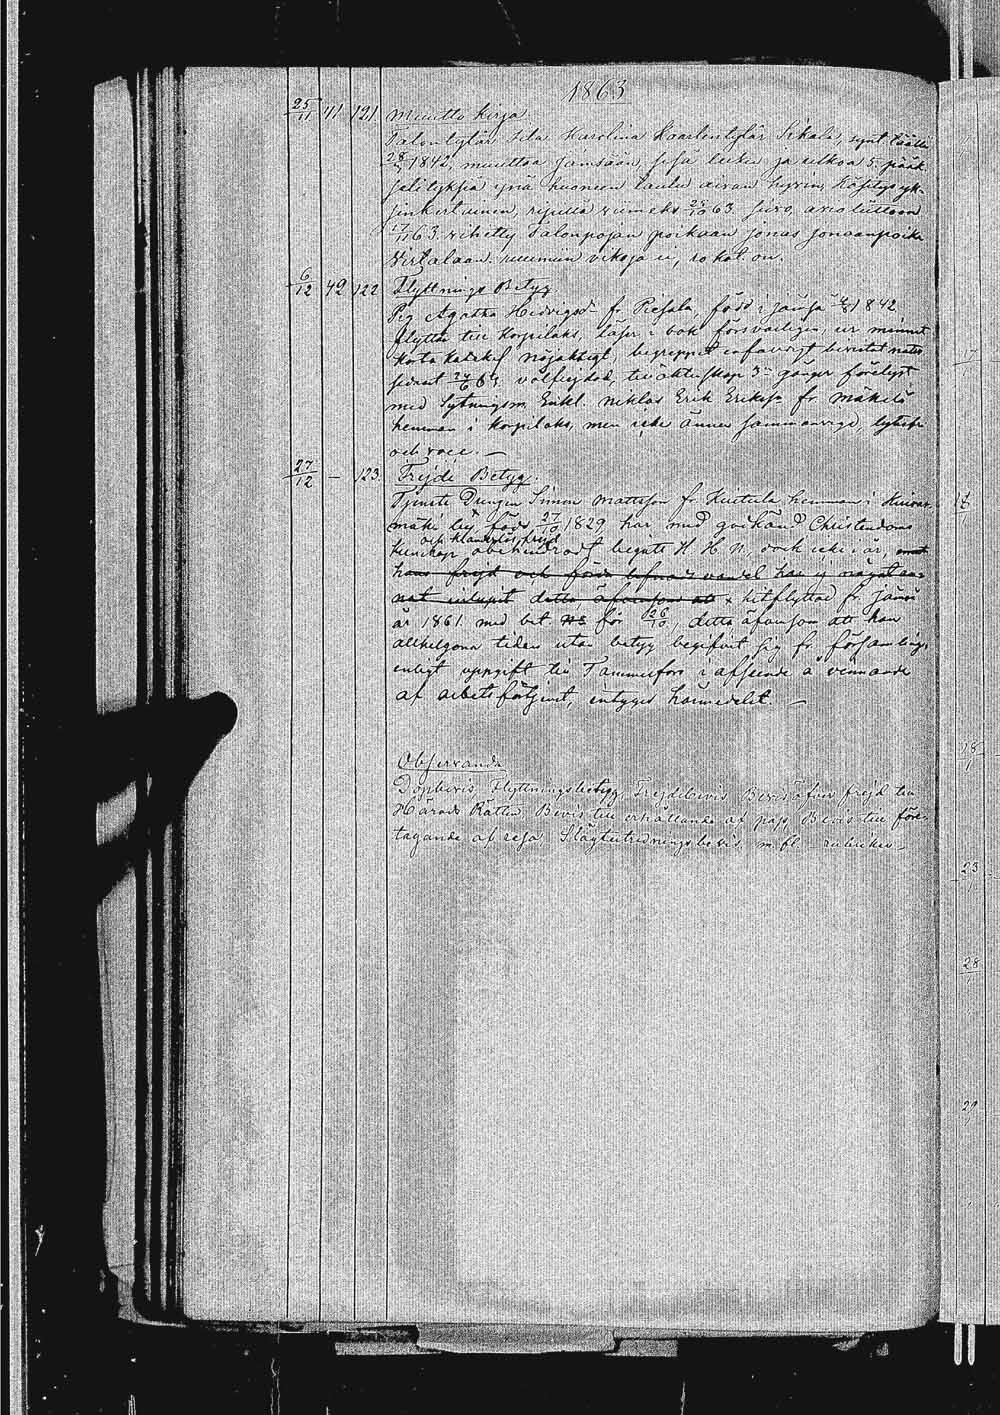 1863
25/11 41 121 Muutto kirja
Talontytär Iita Karolina Kaarlentytär Sikala, synt täällä
28/ 1842, muuttaa Jämsään, sisä lukee ja ulkoa 5 pääk.
selityksiä ynä huoneen taulu aivan hyvin, käsitys yk-
sinkertainen, ripillä viimeks 25/10 63. sivo, avioliittoon
17/11 63. vihetty Talonpojan poikaan Jonas Jonaanpoika
Virtalaan. ruumiin vikoja ei, rokot. on.
6/12 42 122 Flyttnings Betyg
Pig Agatha Hedvigsdr fr. Piesala, född i Jämsä 1842
flyttar till Korpilaks, läser i bok försvarligen, ur minnet
korta katekes nöjaktigt, begreppet
senast 24/6 63, välfrejdad, till äktenskap 3ne gånger förelyst
med Sytningsm. Enkl. Niklas Erik Eriksson fr. Mäkelä
hemman i Korpilaks, men icke ännu sammanvigd, lytesfri
och vacc. —
27/12 — 123. Frejde Betyg.
Tjenste Drengen Simon Mattsson fr. Kuitula hemman i Kuivas-
mäki by, född 27/10 1829 har med godkänd Christendoms
och klanderfri frejd
kunskap obehindradt begått H. H. N., dock icke i år,
hans frejd och förda lefnadsvandel har ej något an-
nat inlupit detta, äfvensom att hitflyttad fr. Jämsä
år 1861 med bet. N:o för 26/10, detta äfvensom att han
allhelgona tiden utan betyg begifvit sig fr. församling
enligt uppgift till Tammerfors i afseende å vinnande
af arbetsförtjenst, intygas härmedelst. —
Observanda
Dopbevis, Flyttningsbetyg, Frejdebevis, Bevis öfver frejd till
Härads Rätten, Bevis till erhållande af pass, Bevis till före-
tagande af resa, Slägtutredningsbevis m. fl. rubriker —
17
18
23
28
29